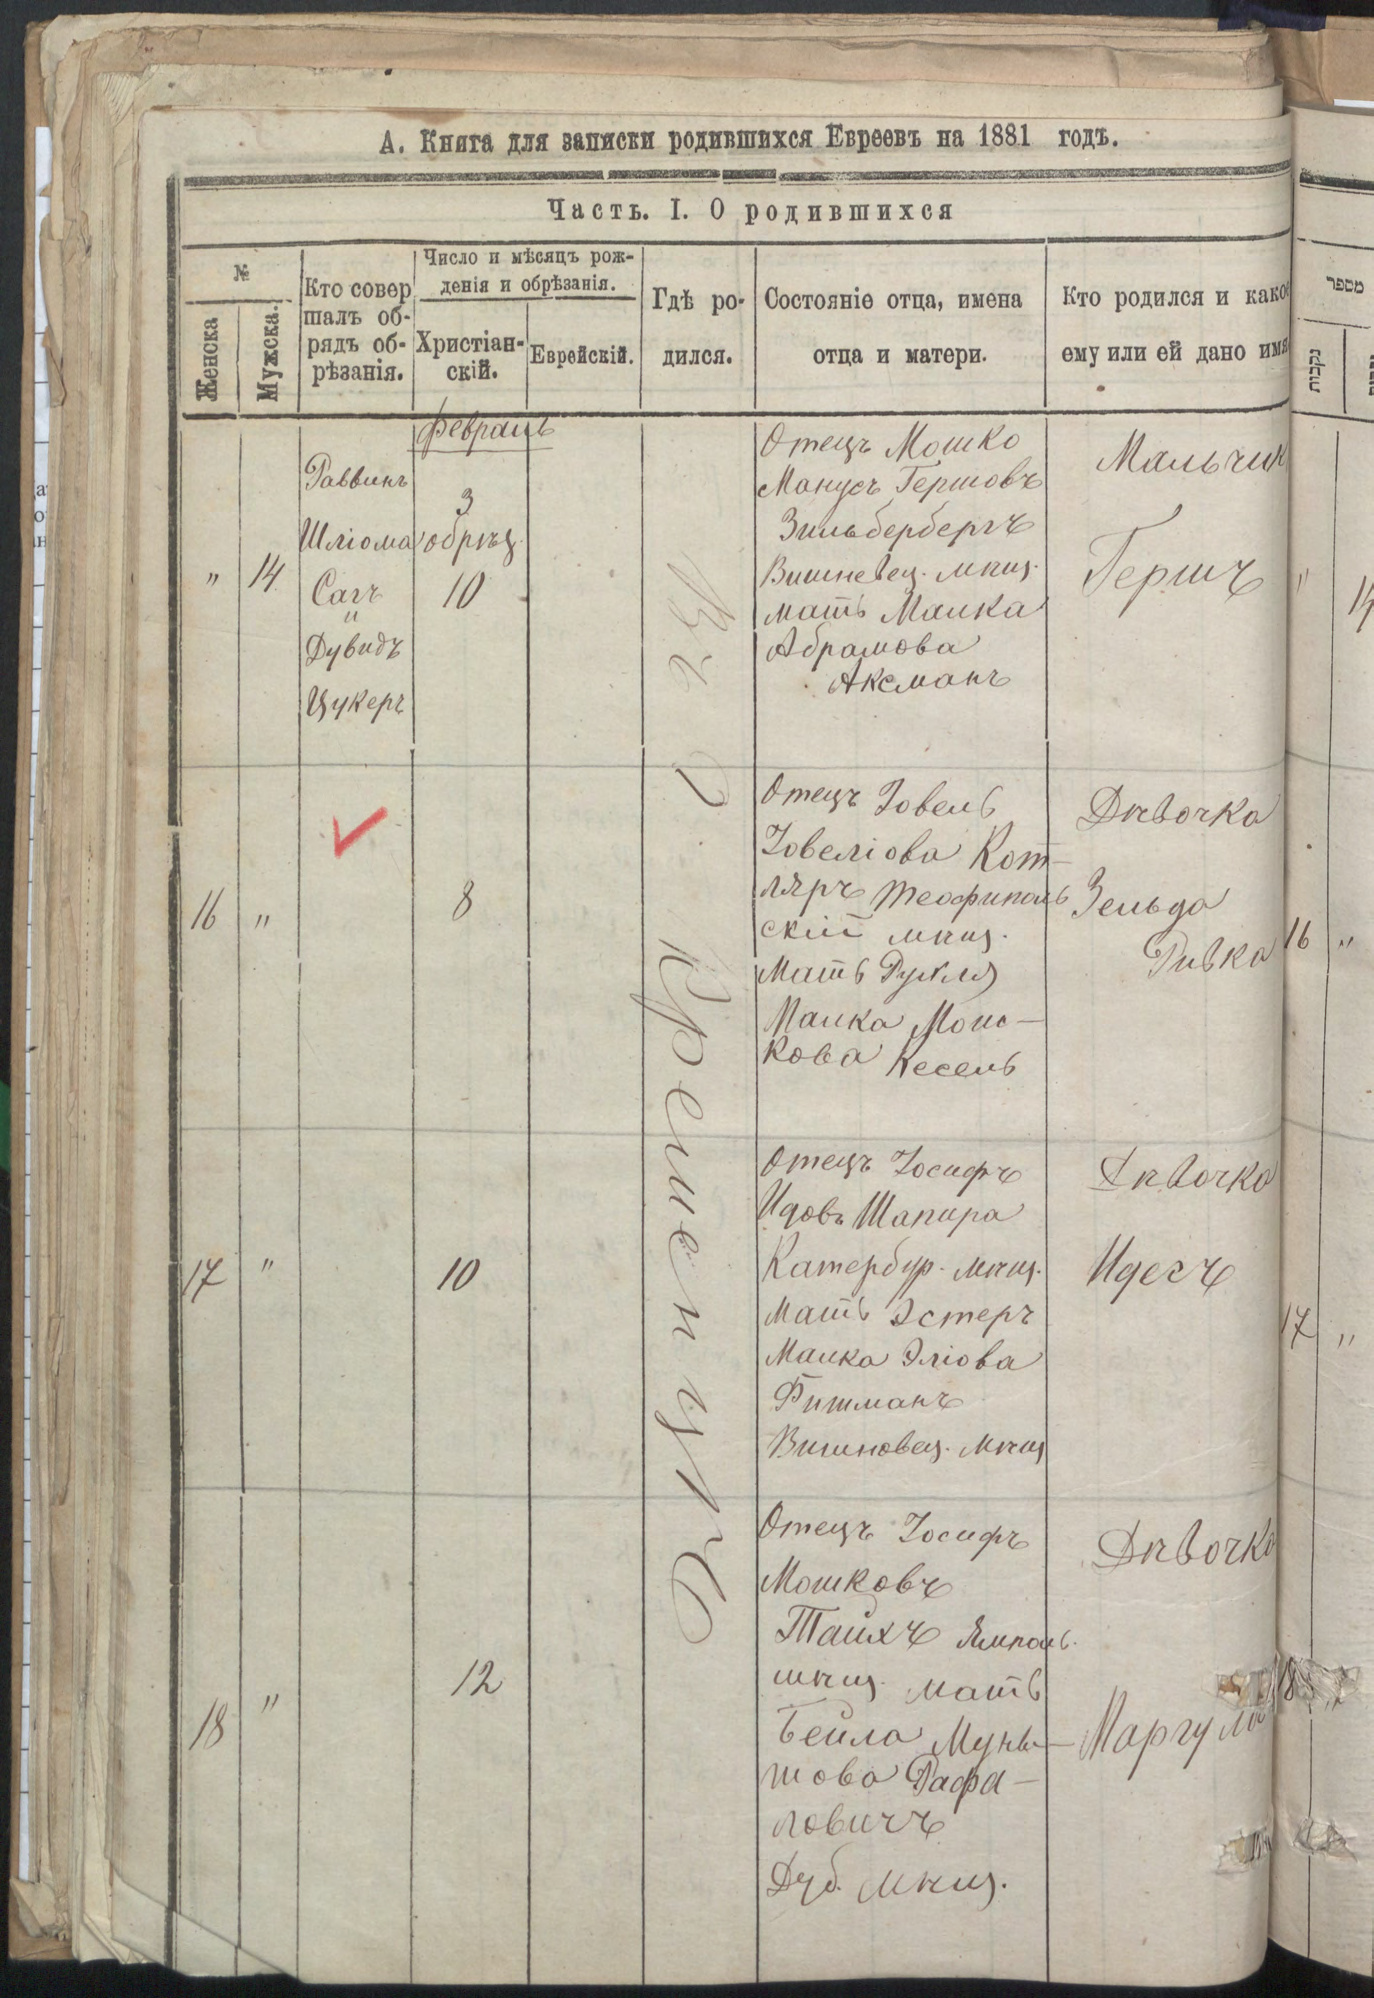 А. Книга для записки родившихся Евреевъ на 1881 годъ.
Часть. I. О родившихся
№
Женска
Мужска.
Кто совер
шалъ об-
рядъ об-
рѣзанія.
Число и мѣсяцъ рож-
денія и обрѣзанія.
Христіан-
скій.
Еврейскій.
Гдѣ ро-
дился.
Состояніе отца, имена
отца и матери.
Кто родился и какое
ему или ей дано имя
מספר
נקבות
Февраль
"
14
Раввинъ
Шліома
Сагъ
и
Дувидъ
Цукеръ
3
обрѣз.
10
Въ г. Кременцѣ
Отецъ Мошко
Манусъ Гершовъ
Зильбербергъ
Вишневец. мѣщ.
мать Малка
Абрамова
Аксманъ
Мальчик
Гершъ
"
14
16
"
8
Отецъ Іовель
Іовеліова Кот-
ляръ Теофиполь
скій мѣщ.
Мать Рухля
Малка Мош-
кова Кесель
Дѣвочка
Зельда
Ривка
16
"
17
"
10
Отецъ Іосифъ
Идовъ Шапира
Катербур. мѣщ.
Мать Эстеръ
Малка Эліова
Фишманъ
Вишновец. мѣщ
Дѣвочка
Идесъ
17
"
18
"
12
Отецъ Іосифъ
Мошковъ
Тайхъ Ямполь.
мѣщ. мать
Бейла Муны-
шова Рафа-
ловичъ
Дуб. мѣщ.
Дѣвочка
Маргуля
18
"